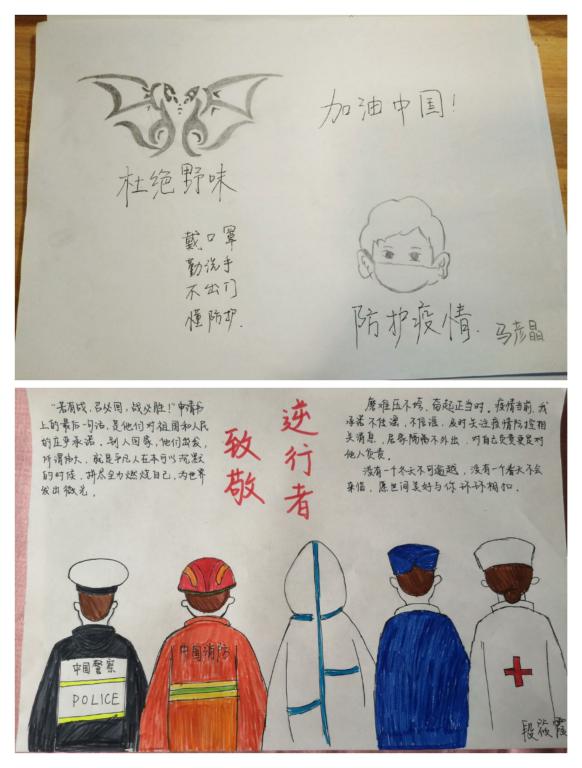 加油中国!
杜绝野味
戴口罩
勤洗手
不出门
懂防护.
防护疫情.
马彦晶
"若有战,召必回,战必胜!"申请书
上的最后一句话,是他们对祖国和人民
的庄严承诺。别人回家,他们出发,
所谓伟大,就是平凡人在本可以沉默
的时候,拼尽全力燃烧自己,为世界
发出微光。
逆行者
致敬
磨难压不垮,奋起正当时。疫情当前,我
承诺不传谣,不信谣,及时关注疫情防控相
关消息,居家隔离不外出,对自己负责更是对
他人负责。
没有一个冬天不可逾越,没有一个春天不会
来临,愿世间美好与你环环相扣。
中国警察
POLICE
中国消防
段筱霞